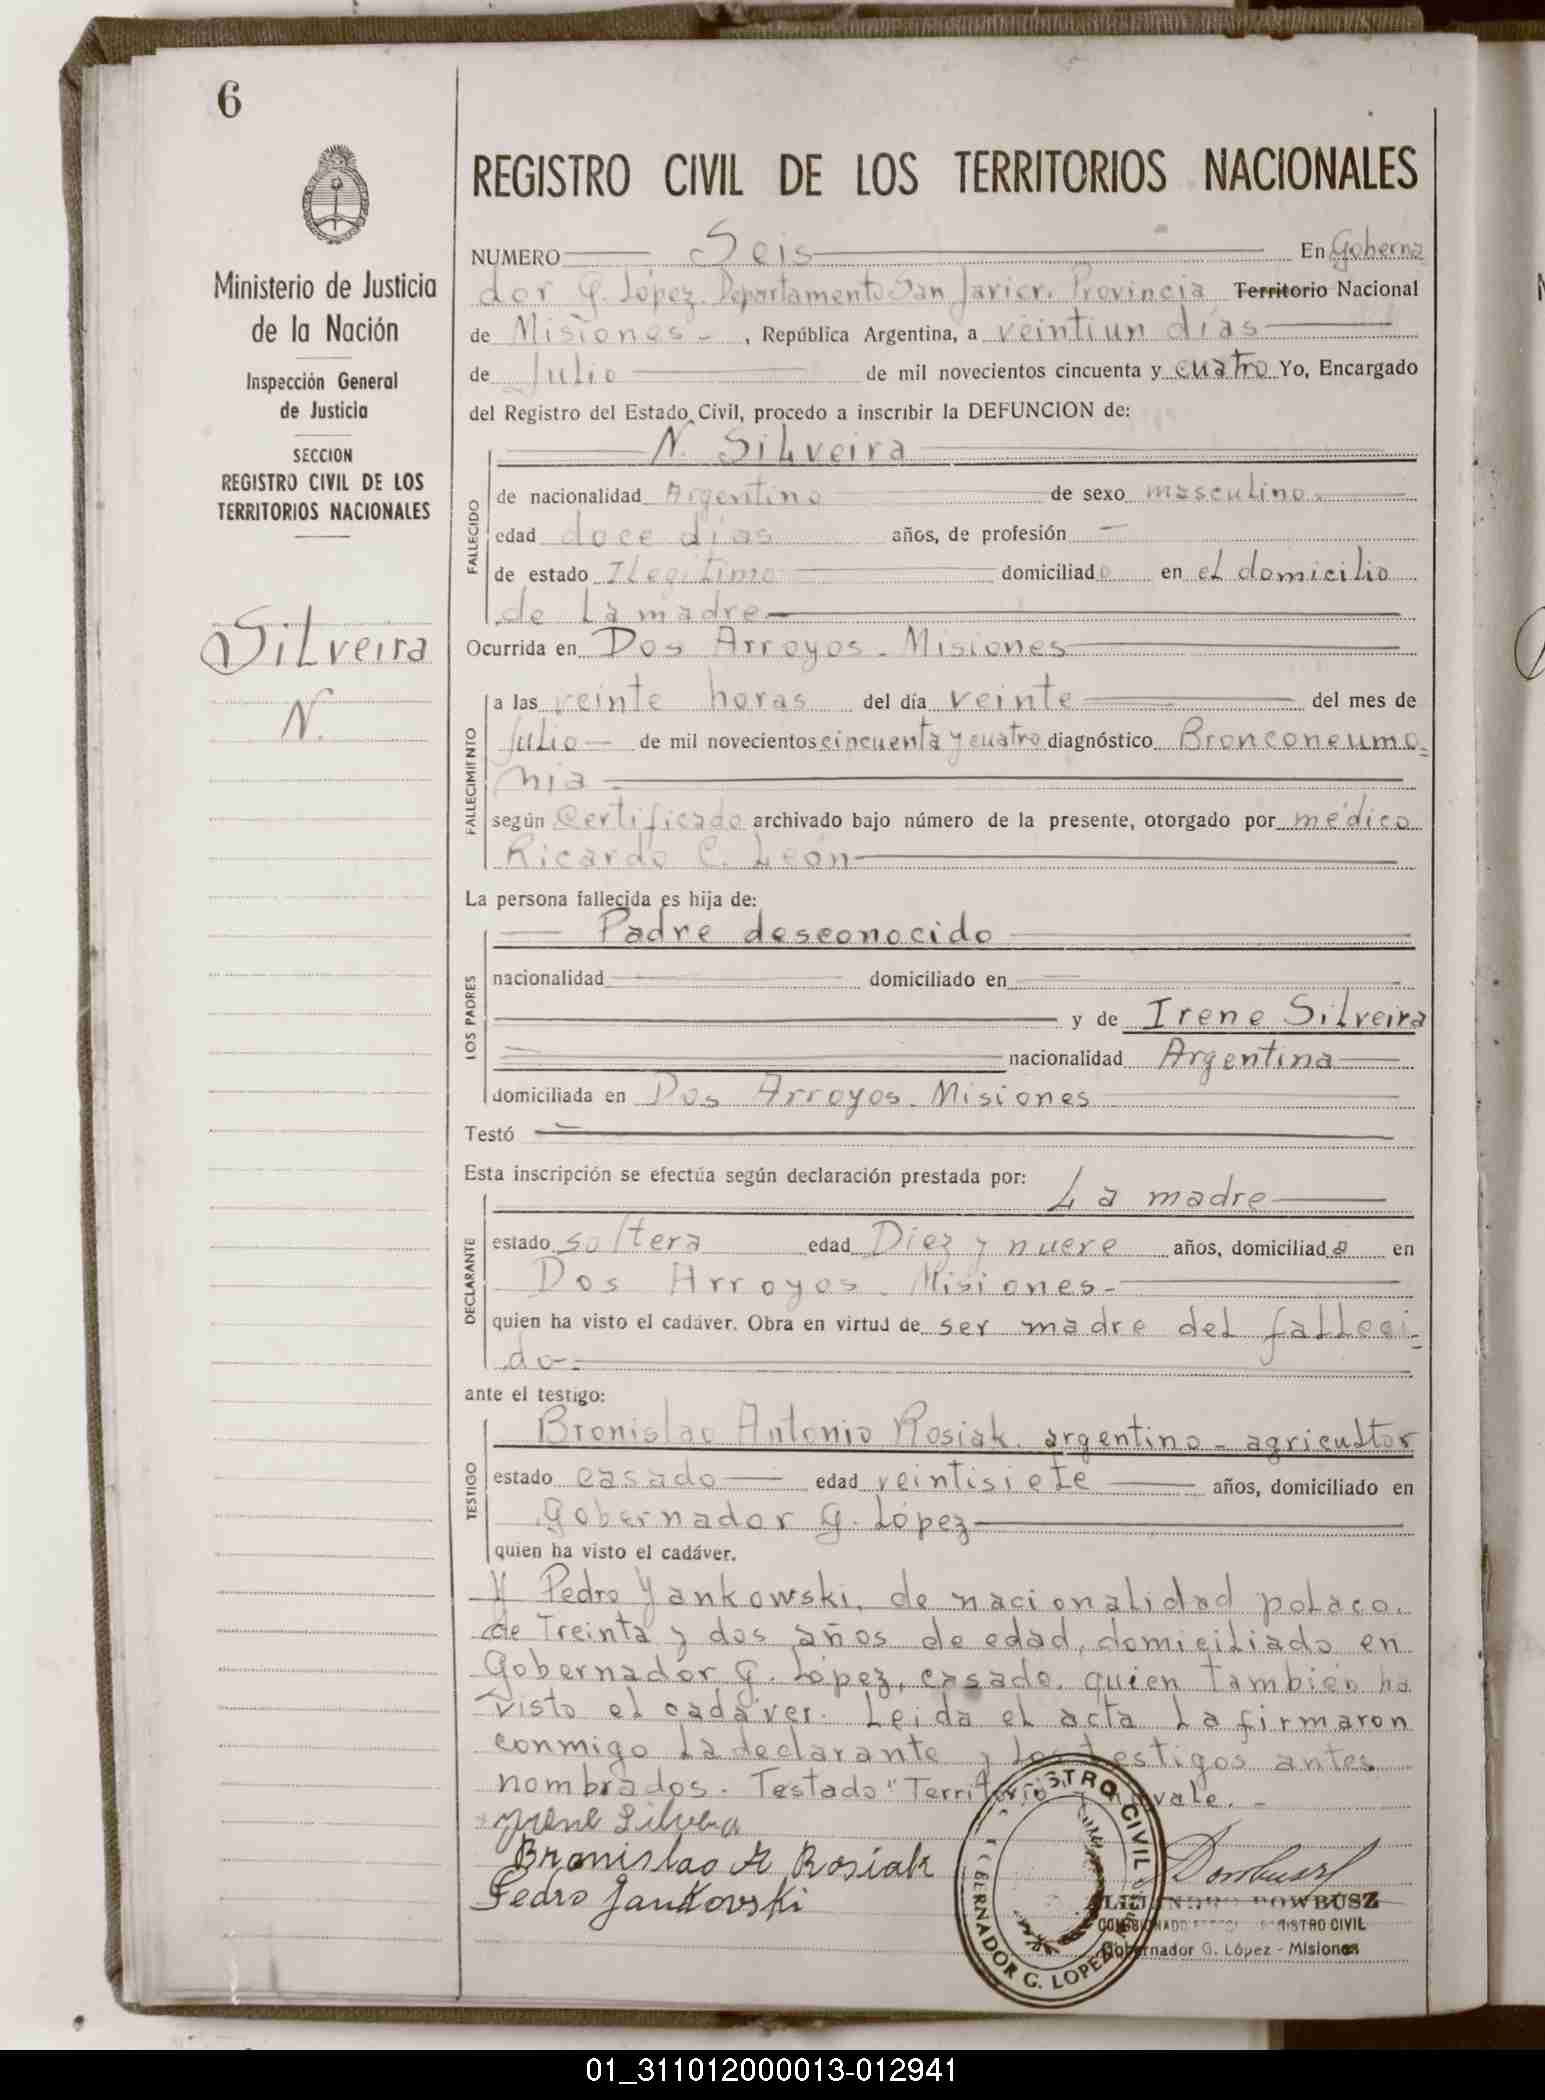 6
REGISTRO CIVIL DE LOS TERRITORIOS NACIONALES
Ministerio de Justicia
de la Nación
Inspección General
de Justicia
SECCION
REGISTRO CIVIL DE LOS
TERRITORIOS NACIONALES
Silveira
N.
NUMERO Seis En Goberna
dor G. López. Departamento San Javier. Provincia Territorio Nacional
de Misiones - , República Argentina, a veintiun días
de Julio de mil novecientos cincuenta y cuatro Yo, Encargado
del Registro del Estado Civil, procedo a inscribir la DEFUNCION de:
N. Silveira
FALLECIDO
de nacionalidad Argentino de sexo masculino.
edad doce días años, de profesión —
de estado Ilegítimo domiciliado en el domicilio
de la madre
Ocurrida en Dos Arroyos. Misiones
FALLECIMIENTO
a las veinte horas del día veinte del mes de
Julio — de mil novecientos cincuenta y cuatro diagnóstico Bronconeumo=
nia
según Certificado archivado bajo número de la presente, otorgado por médico
Ricardo C. León
La persona fallecida es hija de:
LOS PADRES
Padre desconocido
nacionalidad domiciliado en
y de Irene Silveira
nacionalidad Argentina
domiciliada en Dos Arroyos. Misiones
Testó
Esta inscripción se efectúa según declaración prestada por:
La madre
DECLARANTE
estado soltera edad Diez y nueve años, domiciliada en
Dos Arroyos. Misiones-
quien ha visto el cadáver. Obra en virtud de ser madre del falleci=
do-
ante el testigo:
TESTIGO
Bronislao Antonio Rosiak. argentino - agricultor
estado casado edad veintisiete años, domiciliado en
Gobernador G. López
quien ha visto el cadáver.
Y Pedro Yankowski, de nacionalidad polaco.
de Treinta y dos años de edad, domiciliado en
Gobernador G. López, casado. quien también ha
visto el cadáver. Leida el acta la firmaron
conmigo la declarante y los testigos antes
nombrados. Testado "Territorio" no vale. -
Irene Silvera
Bronislao A Rosiak
Pedro Jankovski
REGISTRO CIVIL
GOBERNADOR G. LOPEZ
DOWBUSZ
REGISTRO CIVIL
Gobernador G. López - Misiones
01_311012000013-012941